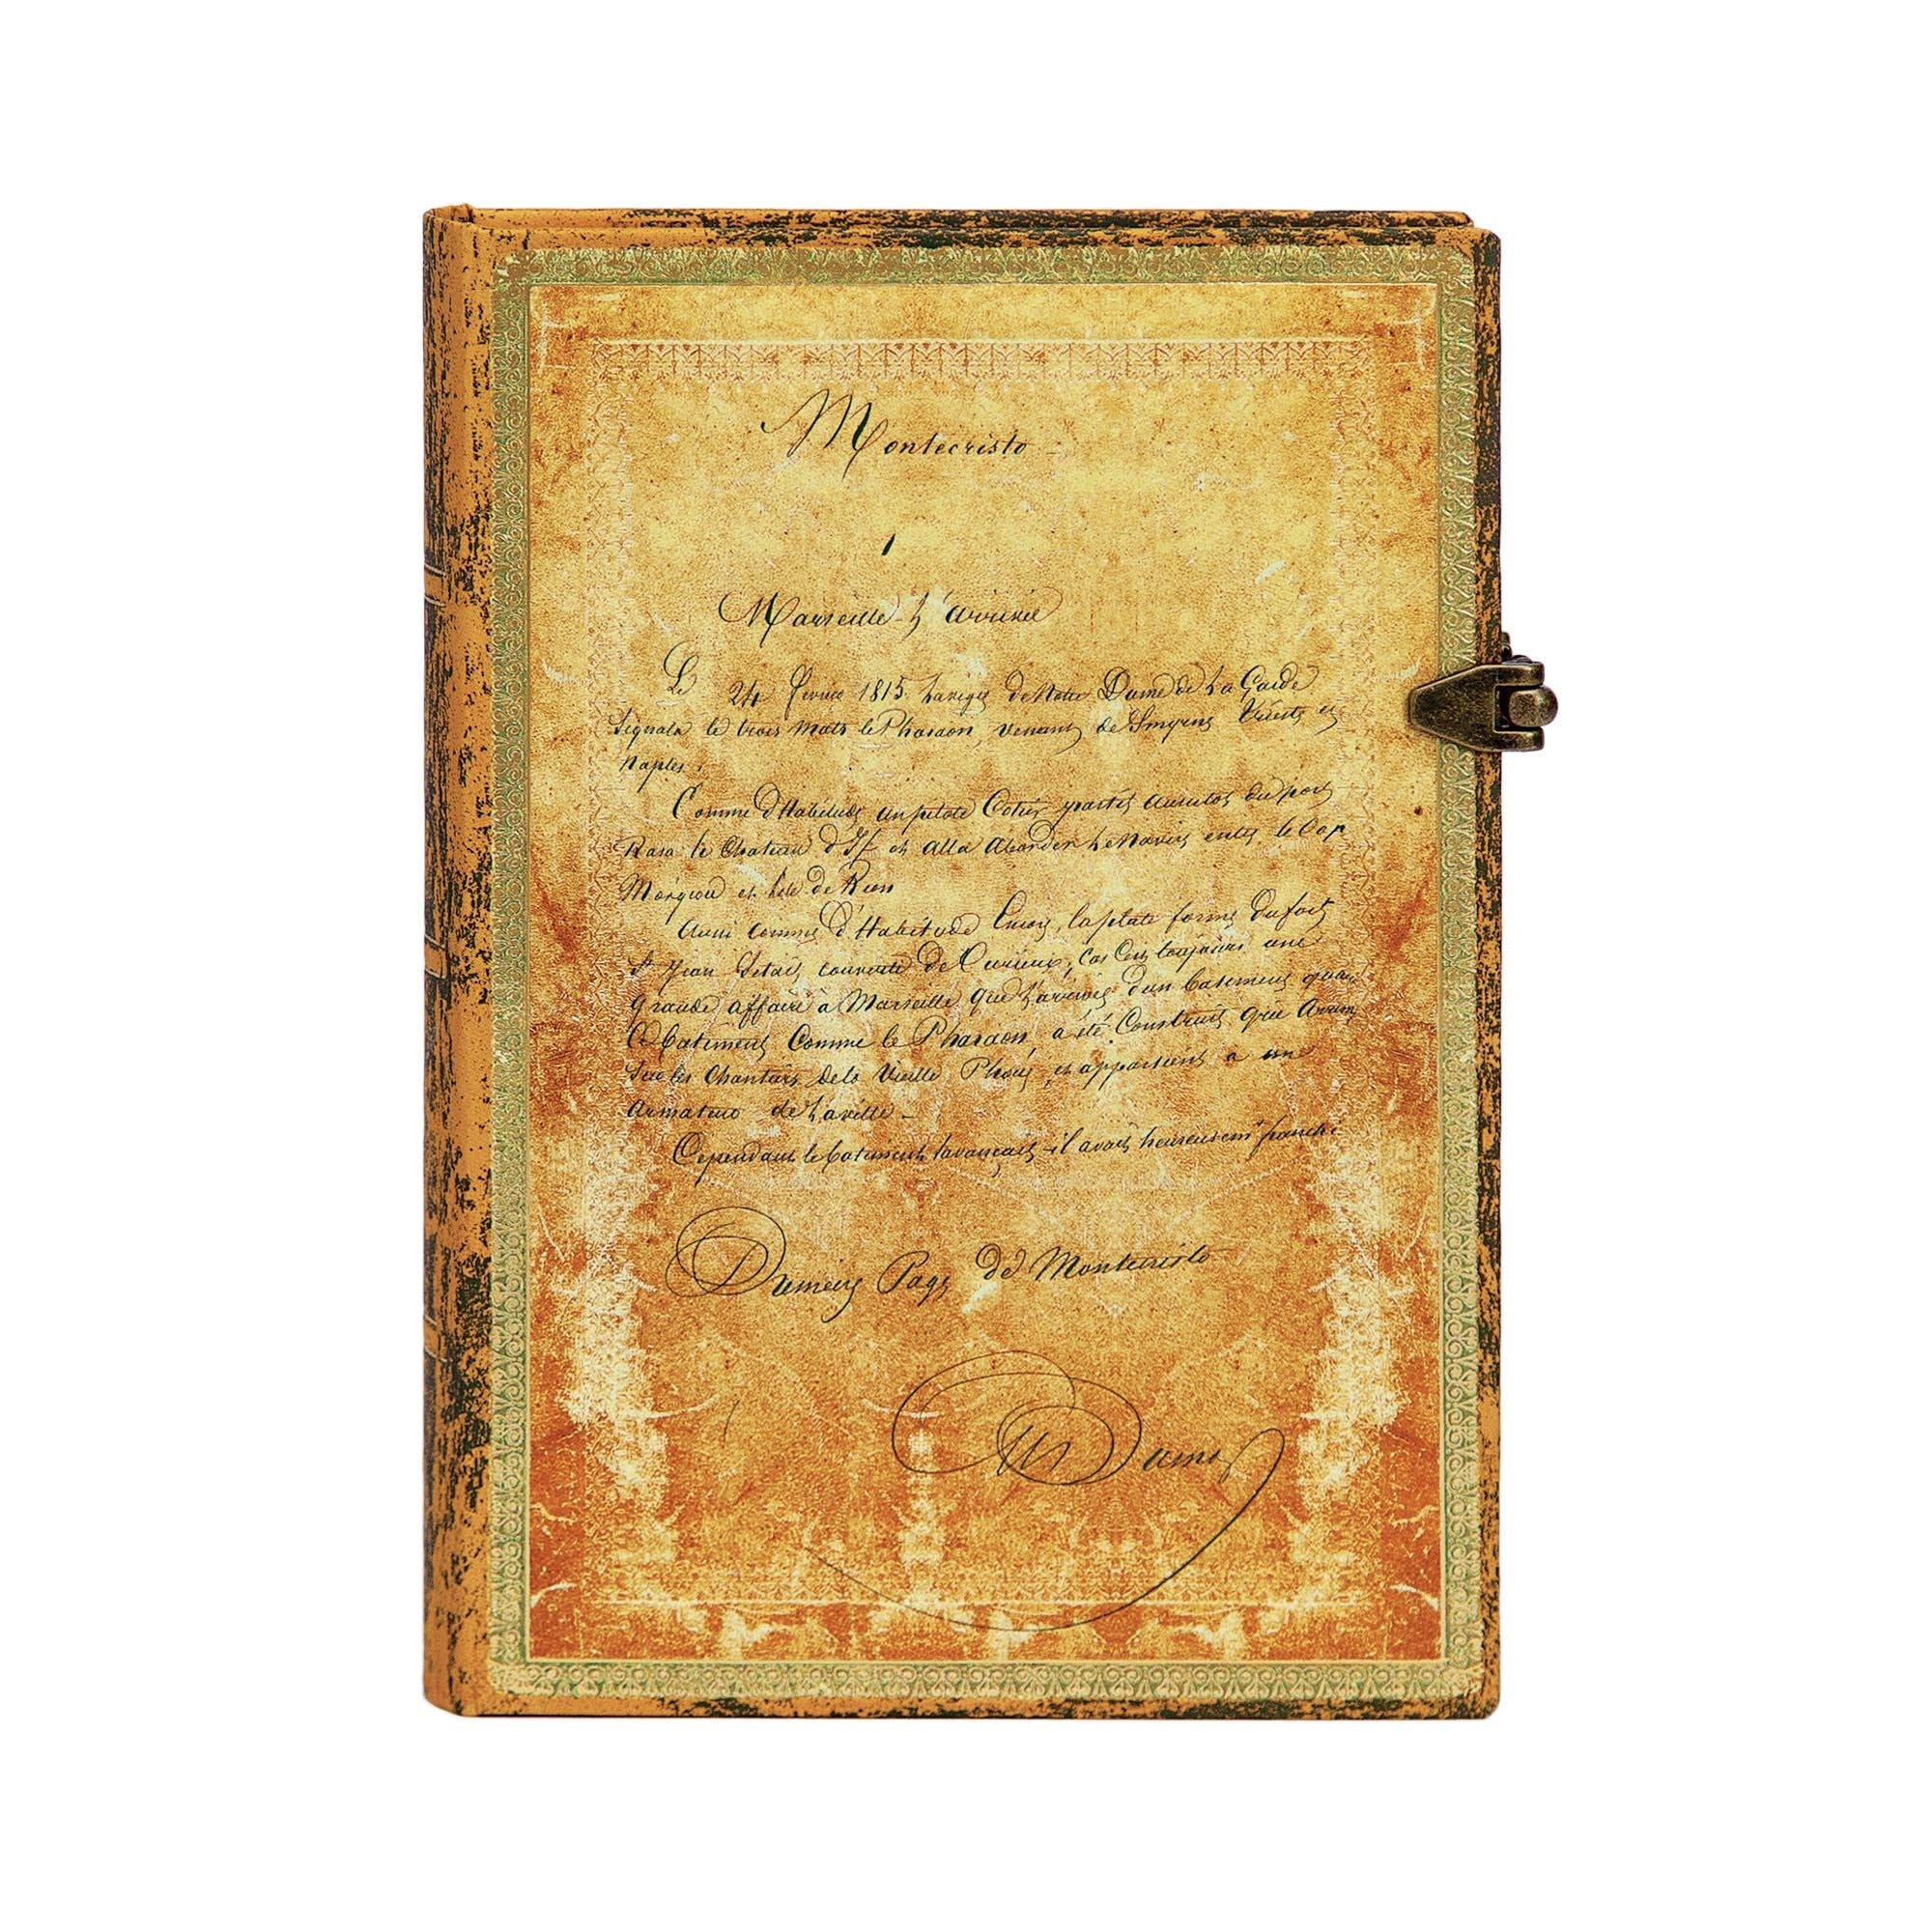 Montecristo
1
Marseille - L'arrivée
Le 24 février 1815 la vigie de Notre Dame de La Garde
Signala le trois mats le Pharaon, venant de Smyrne Trieste et
Naples.
Comme d'Habitude un pilote Cotier partit aussitot du port
Rasa le Chateau d'If et alla aborder le Navire entre le Cap
Morgiou et l'ile de Rion
Aussi comme d'Habitude Encore, la plate forme du fort
St Jean s'etait couverte de Curieux, Car C'est toujours une
grande affaire à Marseille que l'arrivée d'un batiment quand
Ce batiment Comme le Pharaon, a été Construit gréé Arrimé
Sur les Chantiers de la Vieille Phocée, et appartient a un
Armateur de la ville -
Cependant le batiment s'avançait - il avait heureusemt franchi
Page de Montecristo
Dumas